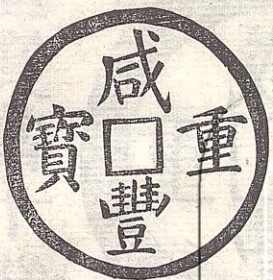 咸豐
重寶